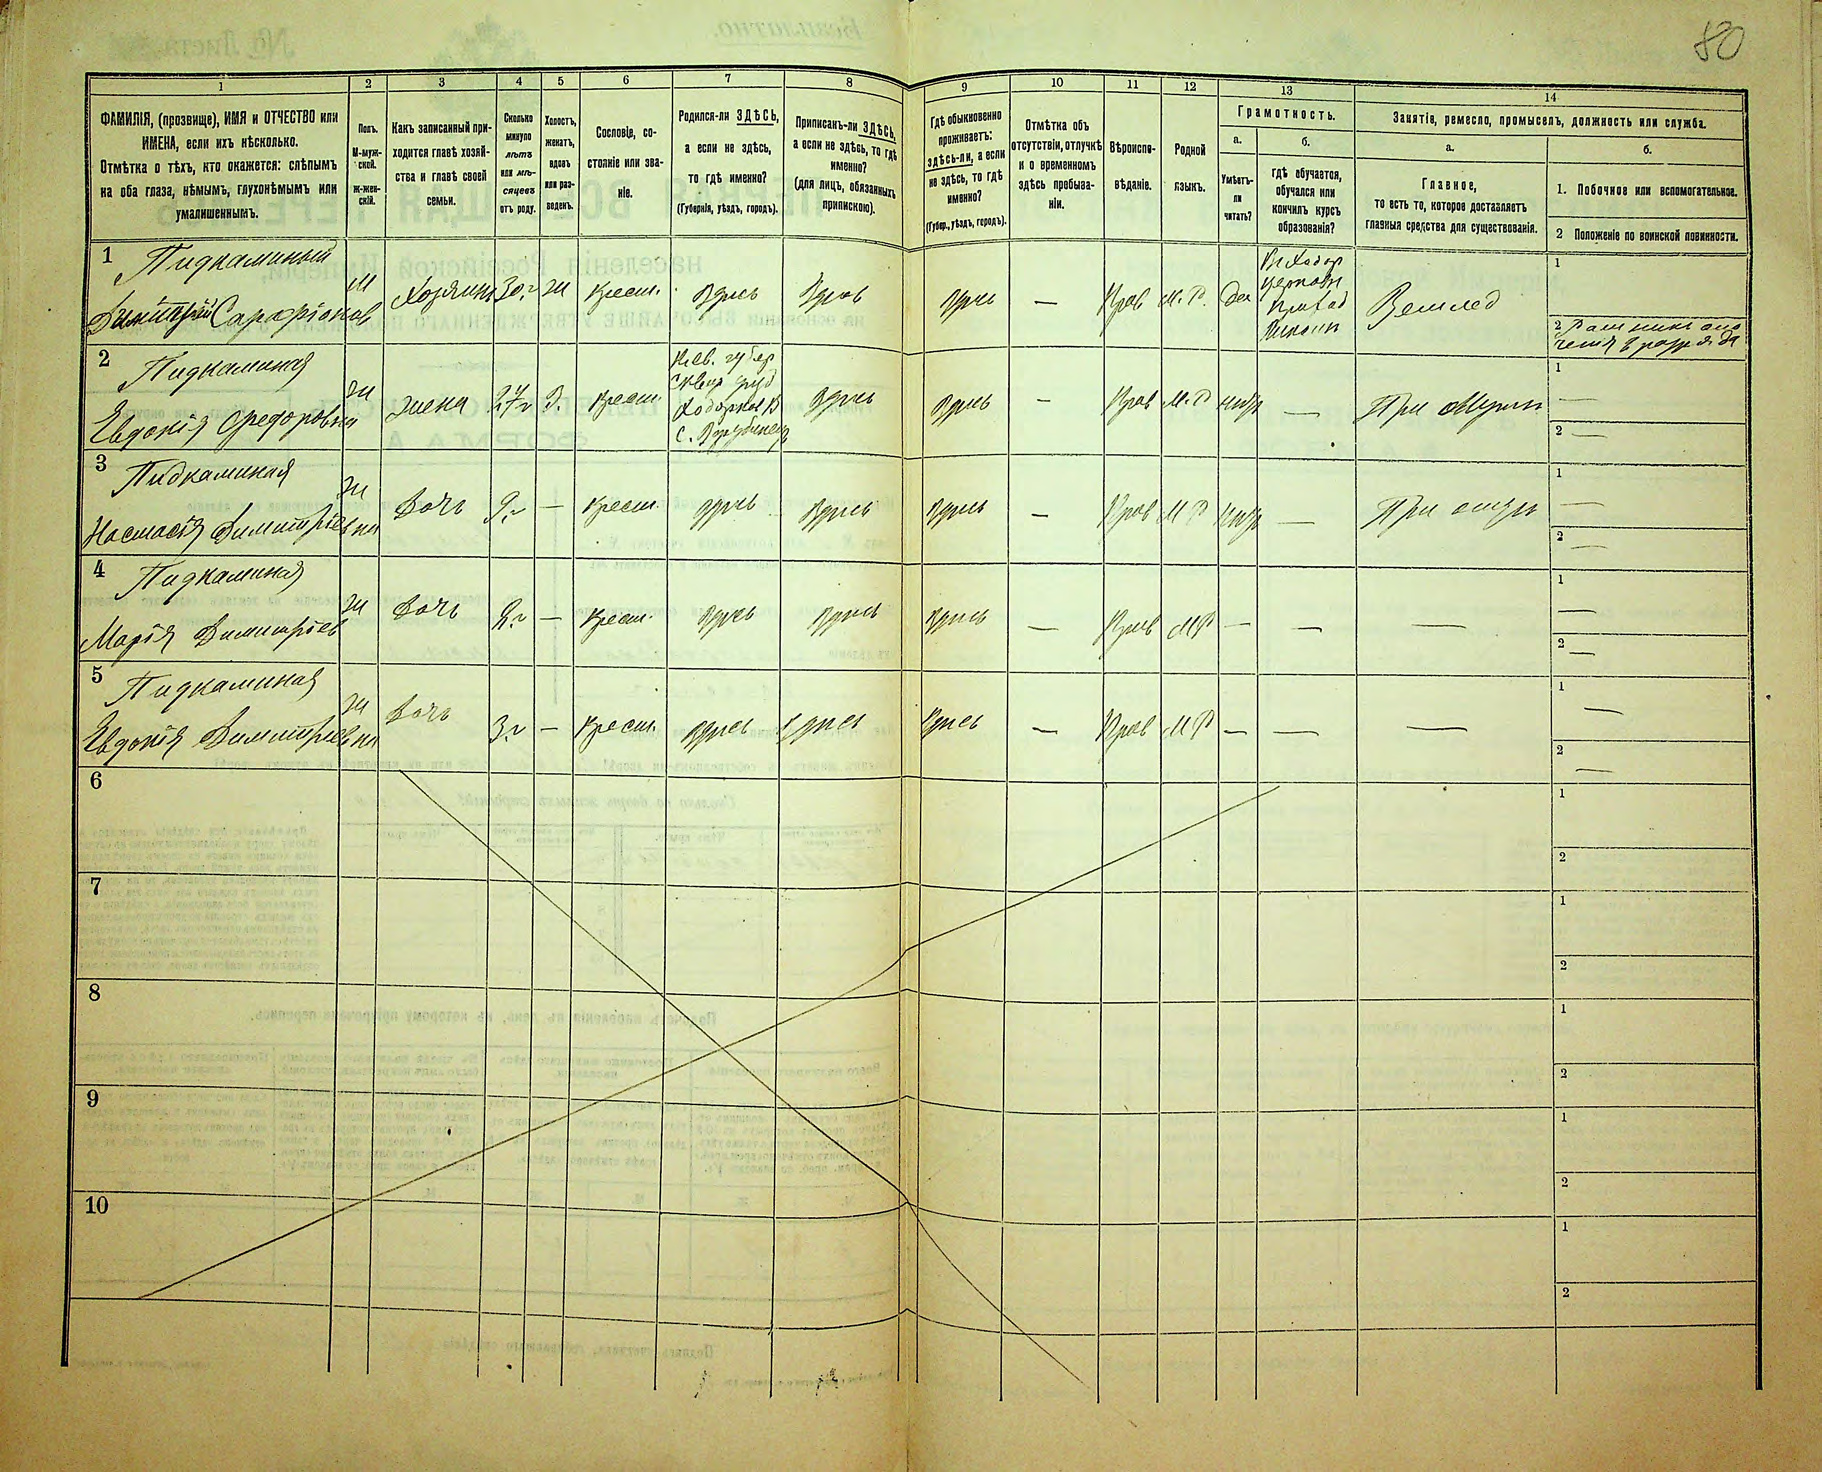 80
1
2
3
4
5
6
7
8
9
10
11
12
13
14
ФАМИЛІЯ, (прозвище), ИМЯ и ОТЧЕСТВО или
ИМЕНА, если ихъ нѣсколько.
Отмѣтка о тѣхъ, кто окажется: слѣпымъ
на оба глаза, нѣмымъ, глухонѣмымъ или
умалишеннымъ.
Полъ.
М-муж-
ской.
Ж-жен-
скій.
Какъ записанный при-
ходится главѣ хозяй-
ства и главѣ своей
семьи.
Сколько
минуло
лѣтъ
или мѣ-
сяцевъ
отъ роду.
Холостъ,
женатъ,
вдовъ
или раз-
веденъ.
Сословіе, со-
стояніе или зва-
ніе.
Родился-ли ЗДѢСЬ,
а если не здѣсь,
то гдѣ именно?
(Губернія, уѣздъ, городъ).
Приписанъ-ли ЗДѢСЬ,
а если не здѣсь, то гдѣ
именно?
(для лицъ, обязанныхъ
припискою).
Гдѣ обыкновенно
проживаетъ:
здѣсь-ли, а если
не здѣсь, то гдѣ
именно?
(Губер., уѣздъ, городъ).
Отмѣтка объ
отсутствіи, отлучкѣ
и о временномъ
здѣсь пребыва-
ніи.
Вѣроиспо-
вѣданіе.
Родной
языкъ.
Грамотность.
а.
Умѣетъ-
ли
читать?
б.
гдѣ обучается,
обучался или
кончилъ курсъ
образованія?
Занятіе, ремесло, промыселъ, должность или служба.
а.
Главное,
то есть то, которое доставляетъ
главныя средства для существованія.
б.
1. Побочное или вспомогательное.
2 Положеніе по воинской повинности.
1
Пидкаминый
Димитрій Сарафіонов
м
Хозяинъ
30 г
ж
Крест.
Здесь
Здесь
Здесь
—
Прав
М. Р.
Да
Земелед
1
2
2
Пидкаминая
Евдокія Федоровна
ж
жена
27 г
З.
Крест.
Кіев. губер
Сквир. уезд
Здесь
Здесь
—
Прав
М. Р
негр
—
При мужи
1 —
2 —
3
Пидкаминая
Настасія Димитріевна
ж
Дочь
9 г
—
Крест.
здесь
здесь
здесь
—
Прав
М Р
негр
—
При отцы
1 —
2 —
4
Пидкаминая
Марія Димитріев
ж
Дочь
—
Крест.
здесь
здесь
здесь
—
Прав
М Р
—
—
—
1 —
2 —
5
Пидкаминая
Евдокія Димитріевна
ж
Дочь
3 г
—
Крест.
здесь
здесь
здесь
—
Прав
М Р
—
—
—
1 —
2 —
6
1
2
7
1
2
8
1
2
9
1
2
10
1
2